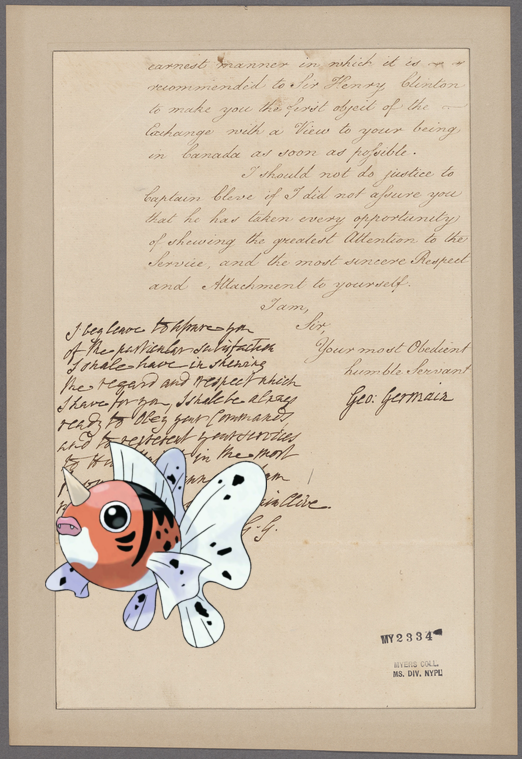 earnest manner in which it is
recommended to Sir Henry Clinton
to make you the first object of the
Exchange with a View to your being
in Canada as soon as possible.
I should not do justice to
Captain Cleve if I did not assure you
that he has taken every opportunity
of shewing the greatest Attention to the
Service, and the most sincere Respect
and Attachment to yourself.
I am,
Sir,
Your most Obedient
humble Servant
Geo: Germain
I beg leave to assure you
of the particular satisfaction
I shall have in shewing
the regard and respect which
I have for you, I shall be always
ready to Obey your Commands
and to represent your services
to in the most
G. G.
MY 2334
MYERS COLL.
MS. DIV. NYPL